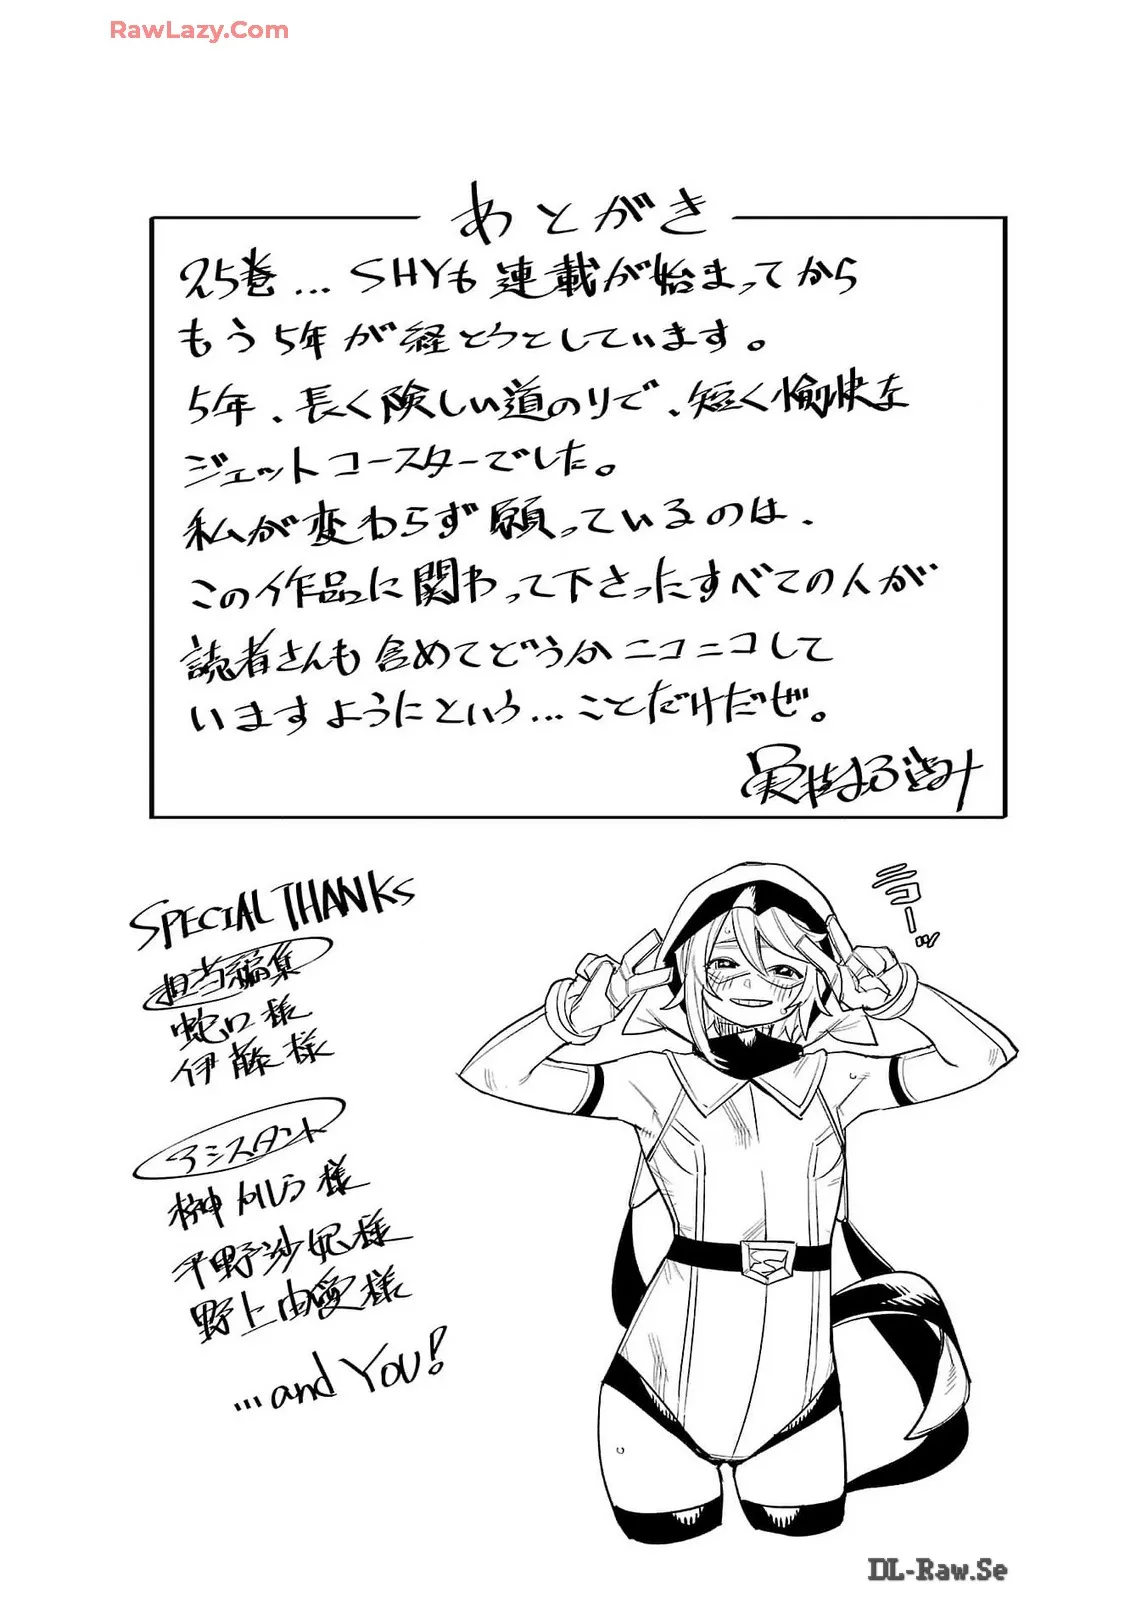 RawLazy.Com
あとがき
25巻…SHYも連載が始まってから
もう5年が経とうとしています。
5年、長く険しい道のりで、短く愉快な
ジェットコースターでした。
私が変わらず願っているのは、
この作品に関わって下さったすべての人が
読者さんも含めてどうかニコニコして
いますようにという…ことだけだぜ。
実樹ぶきみ
SPECIAL THANKS
担当編集
蛇口様
伊藤様
アシスタント
榊かしら様
平野沙妃様
野上由愛様
…and YOU!
ニコーッ
DL-Raw.Se